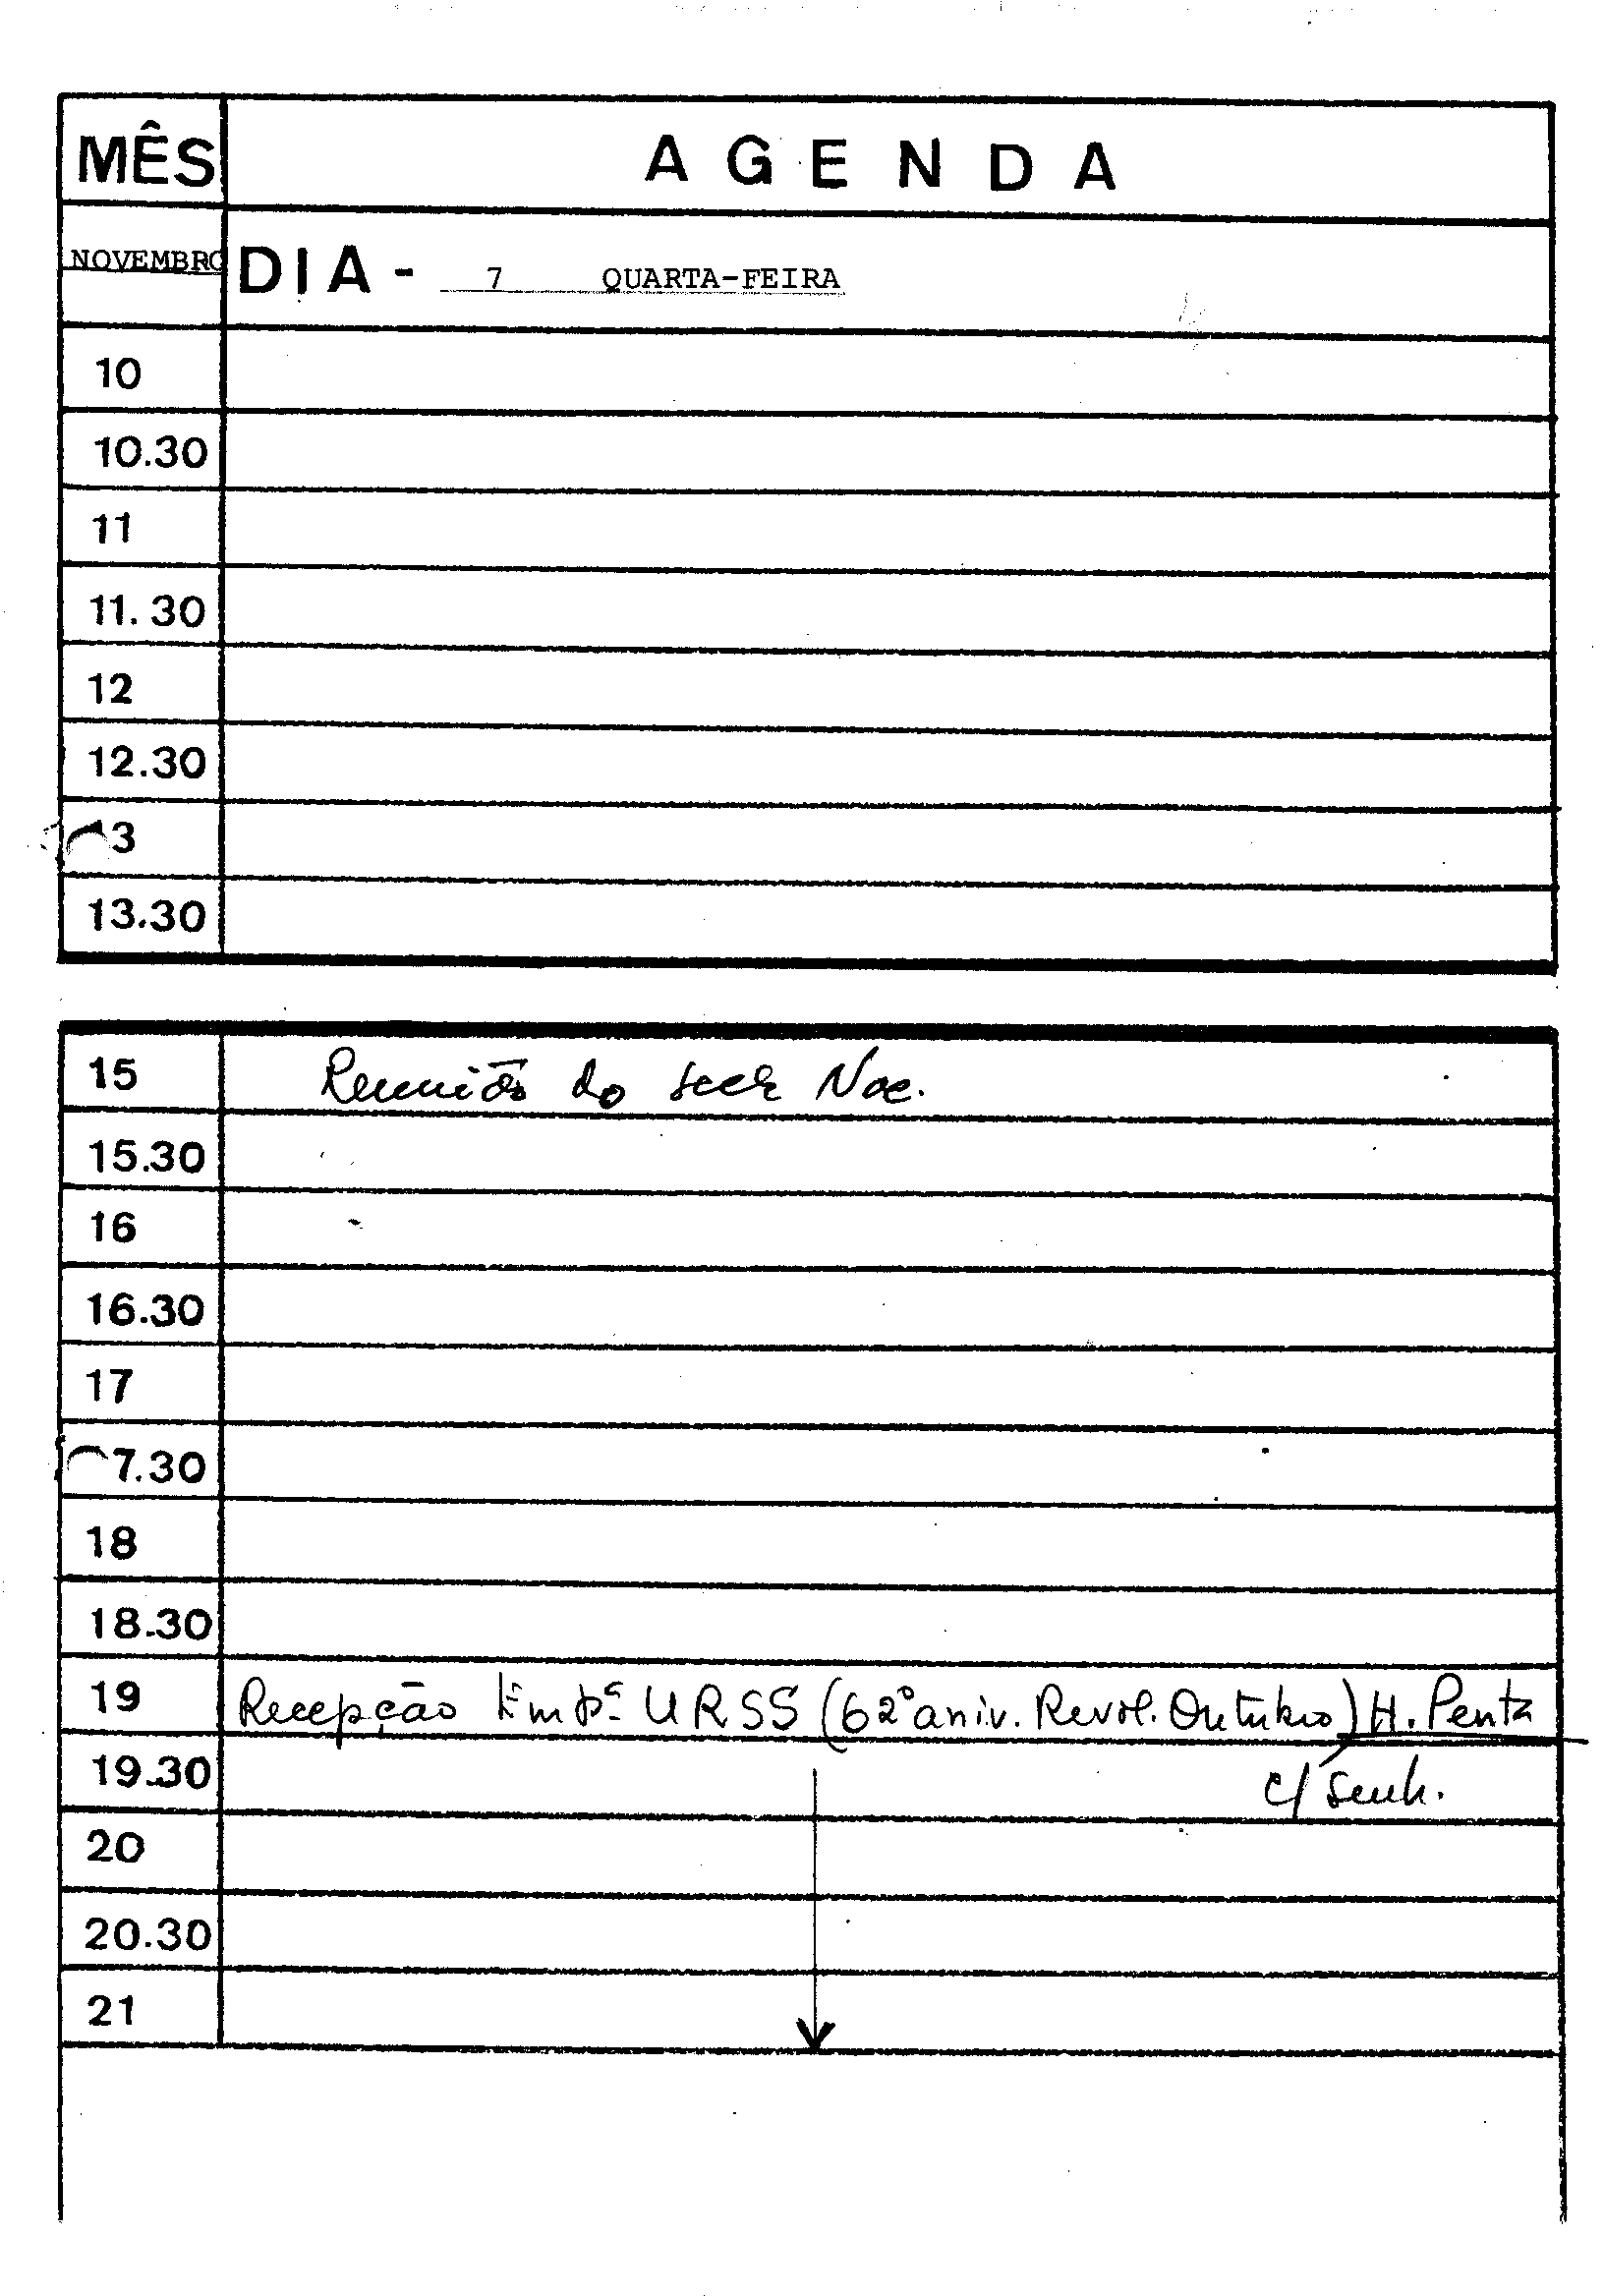 MÊS AGENDA
NOVEMBRO DIA - 7 QUARTA-FEIRA
10
10.30
11
11.30
12
12.30
3
13.30
15 Reunião do
15.30
16
16.30
17
7.30
18
18.30
19 Recepção Emb. URSS (62º aniv. Revol. Outubro) H. Penta
19.30 c/ senh.
20
20.30
21